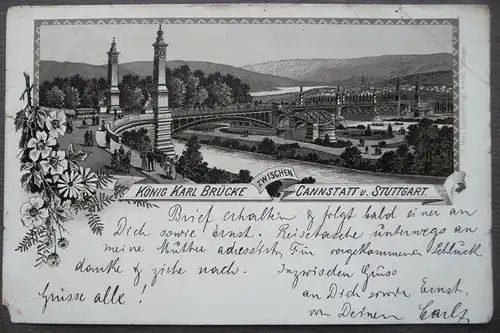 KÖNIG KARL BRÜCKE ZWISCHEN CANNSTATT U. STUTTGART.
Brief erhalten & folgt bald einer an
Dich sowie Ernst. Reisetasche unterwegs an
meine Mutter adressirt, Für vorgekommenen Schluck
danke & ziehe nach. Inzwischen Gruss
Grüsse alle! an Dich sowie Ernst
von Deinem Carl